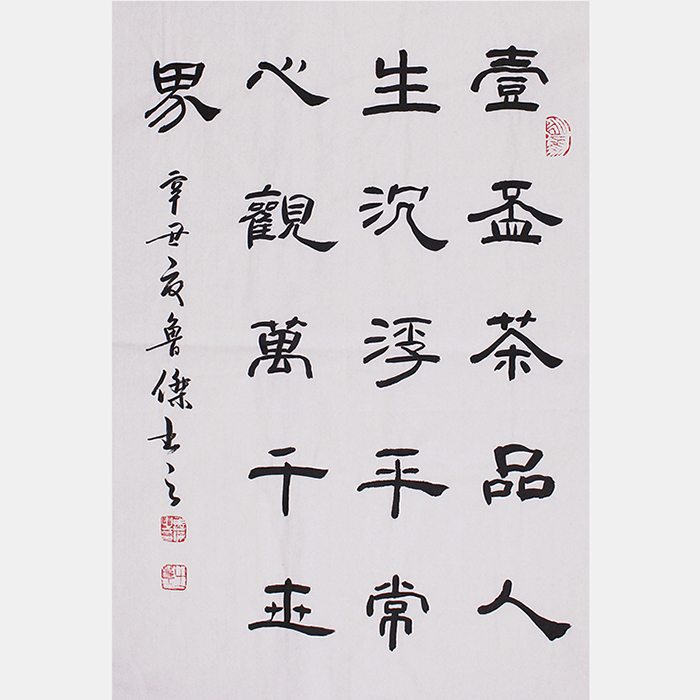 壹盃茶品人
生沉浮平常
心觀萬千世
界
辛丑夏魯傑書